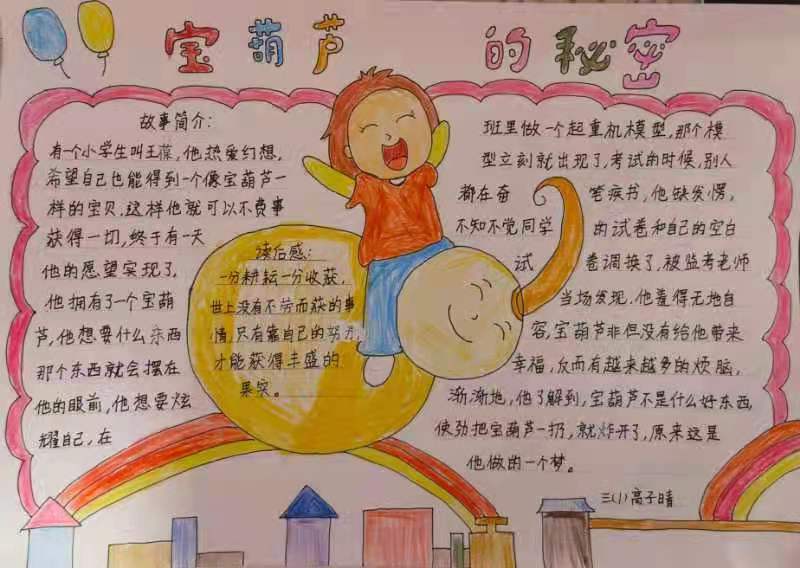 宝葫芦的秘密
故事简介：
有一个小学生叫王葆，他热爱幻想，
希望自己也能得到一个像宝葫芦一
样的宝贝.这样他就可以不费事
获得一切，终于有一天
他的愿望实现了，
他拥有了一个宝葫
芦，他想要什么东西
那个东西就会摆在
他的眼前，他想要炫
耀自己，在
读后感：
一分耕耘一分收获，
世上没有不劳而获的事
情，只有靠自己的努力，
才能获得丰盛的
果实。
班里做一个起重机模型，那个模
型立刻就出现了，考试的时候，别人
都在奋笔疾书，他缺发愣，
不知不觉同学的试卷和自己的空白
试卷调换了，被监考老师
当场发现.他羞得无地自
容，宝葫芦非但没有给他带来
幸福，反而有越来越多的烦恼，
渐渐地，他了解到，宝葫芦不是什么好东西，
使劲把宝葫芦一扔，就炸开了，原来这是
他做的一个梦。
三(1)高子晴